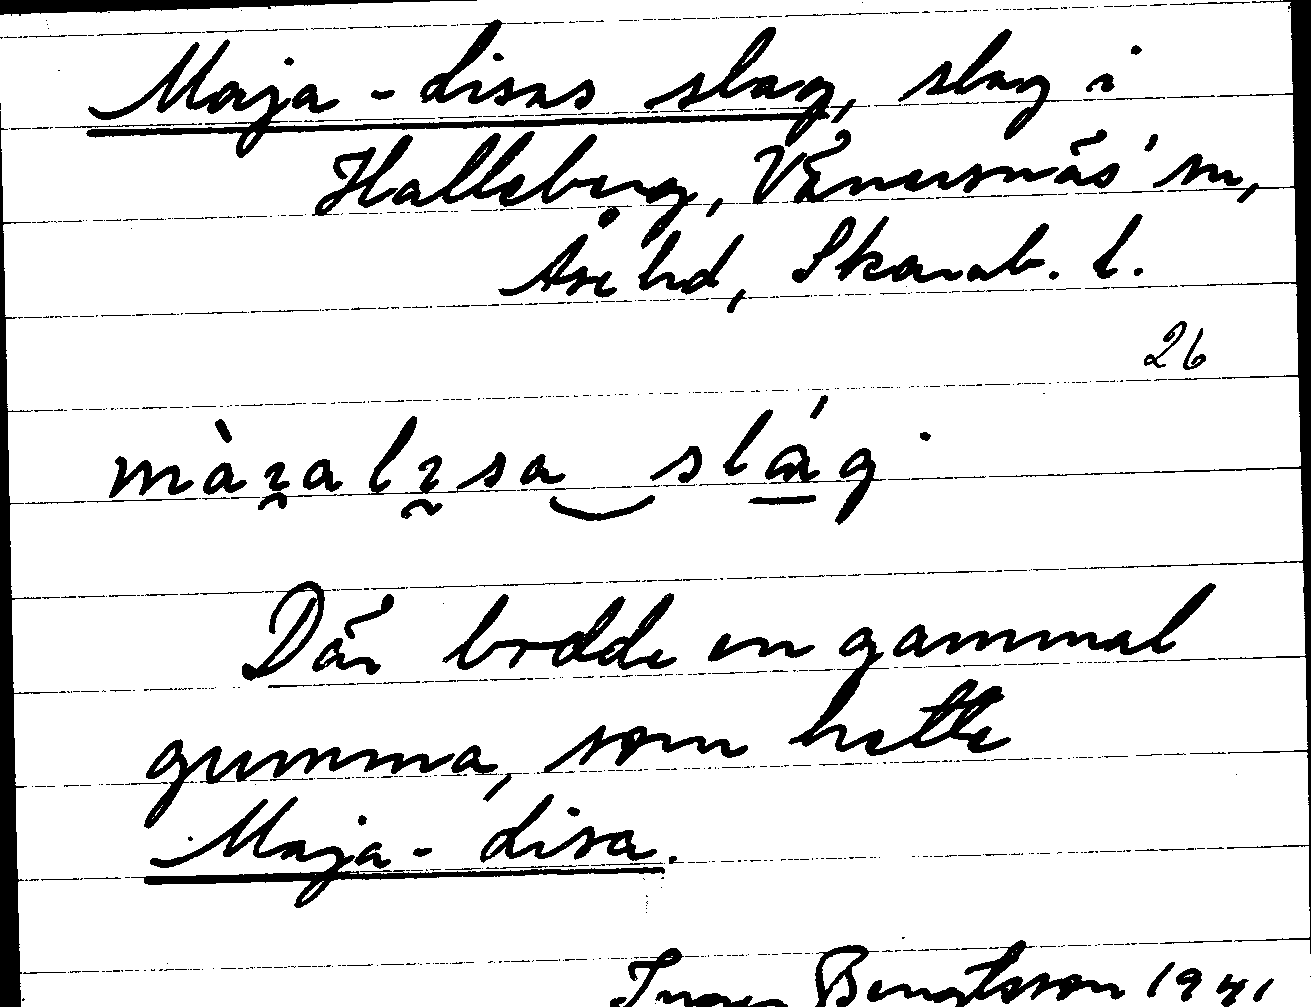 Maja-Lisas slag, slag i
Halleberg, Vänersnäs' sn,
Åse hd, Skarab. l.
26
màɪ̯alɪ̰sa‿slág.
Där bodde en gammal
gumma, som hette
Maja-Lisa.
Inger Bengtsson 1941